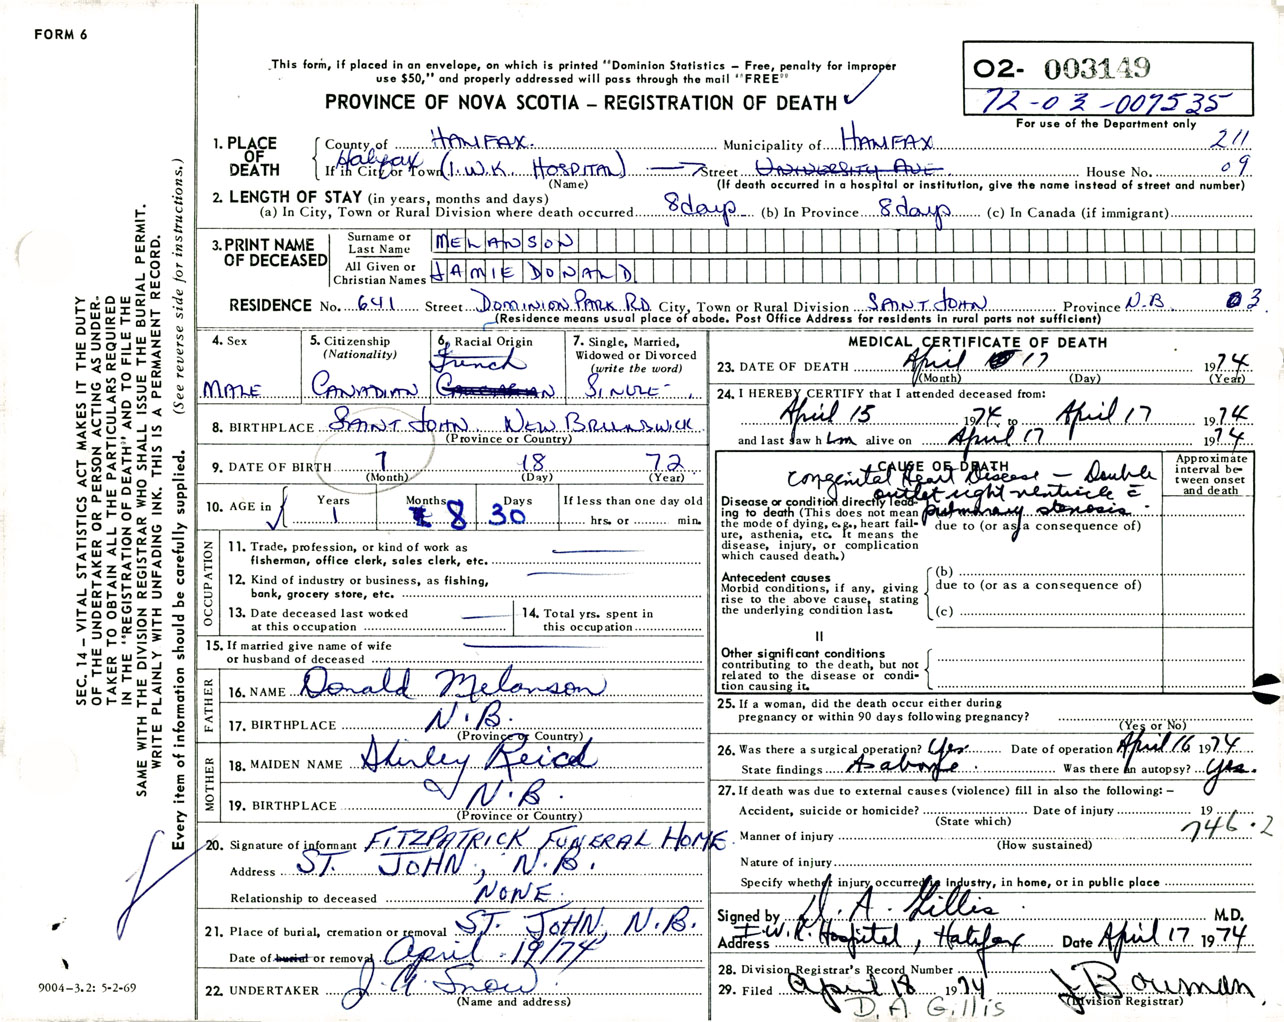 FORM 6
This form, if placed in an envelope, on which is printed "Dominion Statistics – Free, penalty for improper
use $50," and properly addressed will pass through the mail "FREE"
PROVINCE OF NOVA SCOTIA – REGISTRATION OF DEATH
O2- 003149
72-03-007535
For use of the Department only
211
09
1. PLACE OF DEATH
County of HALIFAX Municipality of HALIFAX
If in City or Town Halifax (I.W.K. HOSPITAL) Street UNIVERSITY AVE House No.
(Name) (If death occurred in a hospital or institution, give the name instead of street and number)
2. LENGTH OF STAY (in years, months and days)
(a) In City, Town or Rural Division where death occurred 8 days (b) In Province 8 days (c) In Canada (if immigrant)
3. PRINT NAME OF DECEASED
Surname or Last Name MELANSON
All Given or Christian Names JAMIE DONALD
RESIDENCE No. 641 Street DOMINION PARK RD City, Town or Rural Division SAINT JOHN Province N.B. 03
(Residence means usual place of abode. Post Office Address for residents in rural parts not sufficient)
4. Sex
MALE
5. Citizenship
(Nationality)
CANADIAN
6. Racial Origin
French
7. Single, Married,
Widowed or Divorced
(write the word)
SINGLE
8. BIRTHPLACE SAINT JOHN NEW BRUNSWICK
(Province or Country)
9. DATE OF BIRTH 7 18 72
(Month) (Day) (Year)
10. AGE in
Years Months Days
1 8 30
If less than one day old
hrs. or min.
OCCUPATION
11. Trade, profession, or kind of work as
fisherman, office clerk, sales clerk, etc.
12. Kind of industry or business, as fishing,
bank, grocery store, etc.
13. Date deceased last worked
at this occupation
14. Total yrs. spent in
this occupation
15. If married give name of wife
or husband of deceased
FATHER
16. NAME Donald Melanson
17. BIRTHPLACE N.B.
(Province or Country)
MOTHER
18. MAIDEN NAME Shirley Reicd
19. BIRTHPLACE N.B.
(Province or Country)
20. Signature of informant FITZPATRICK FUNERAL HOME
Address ST. JOHN, N.B.
Relationship to deceased NONE.
21. Place of burial, cremation or removal ST. JOHN, N.B.
Date of burial or removal April 19/74
22. UNDERTAKER J. A. Snow
(Name and address)
MEDICAL CERTIFICATE OF DEATH
23. DATE OF DEATH April 17 1974
(Month) (Day) (Year)
24. I HEREBY CERTIFY that I attended deceased from:
April 15 1974 to April 17 1974
and last saw him alive on April 17 1974
CAUSE OF DEATH
Approximate
interval be-
tween onset
and death
Congenital Heart Disease – Double
outlet right ventricle c̄
pulmonary stenosis
Disease or condition directly lead-
ing to death (This does not mean
the mode of dying, e.g., heart fail-
ure, asthenia, etc. It means the
disease, injury, or complication
which caused death.)
due to (or as a consequence of)
Antecedent causes
Morbid conditions, if any, giving
rise to the above cause, stating
the underlying condition last.
(b)
due to (or as a consequence of)
(c)
II
Other significant conditions
contributing to the death, but not
related to the disease or condi-
tion causing it.
25. If a woman, did the death occur either during
pregnancy or within 90 days following pregnancy?
(Yes or No)
26. Was there a surgical operation? Yes Date of operation April 16 1974
State findings As above Was there an autopsy? Yes.
27. If death was due to external causes (violence) fill in also the following: –
Accident, suicide or homicide? Date of injury 19
(State which)
746.2
Manner of injury
(How sustained)
Nature of injury
Specify whether injury occurred in industry, in home, or in public place
Signed by D. A. Gillis M.D.
Address I.W.K. Hospital, Halifax Date April 17 1974
28. Division Registrar's Record Number
29. Filed April 18 1974 J. Bowman
(Division Registrar)
D. A. GILLIS
SEC. 14 – VITAL STATISTICS ACT MAKES IT THE DUTY
OF THE UNDERTAKER OR PERSON ACTING AS UNDER-
TAKER TO OBTAIN ALL THE PARTICULARS REQUIRED
IN THE "REGISTRATION OF DEATH" AND TO FILE THE
SAME WITH THE DIVISION REGISTRAR WHO SHALL ISSUE THE BURIAL PERMIT.
WRITE PLAINLY WITH UNFADING INK. THIS IS A PERMANENT RECORD.
Every item of information should be carefully supplied. (See reverse side for instructions.)
9004-3.2: 5-2-69